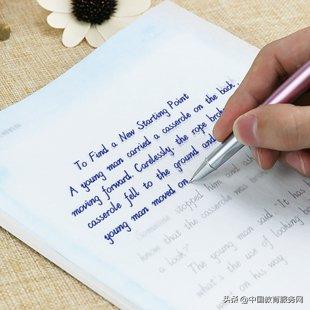 To Find a New Starting Point
A young man carried a casserole on the back
moving forward. Carelessly, the rope
casserole fell to the ground and
young man moved on
someone stopped him and
know that the casserole was
a look?"
The young man said "It has
what's the use of looking
on his way
头条 @中国教育服务网